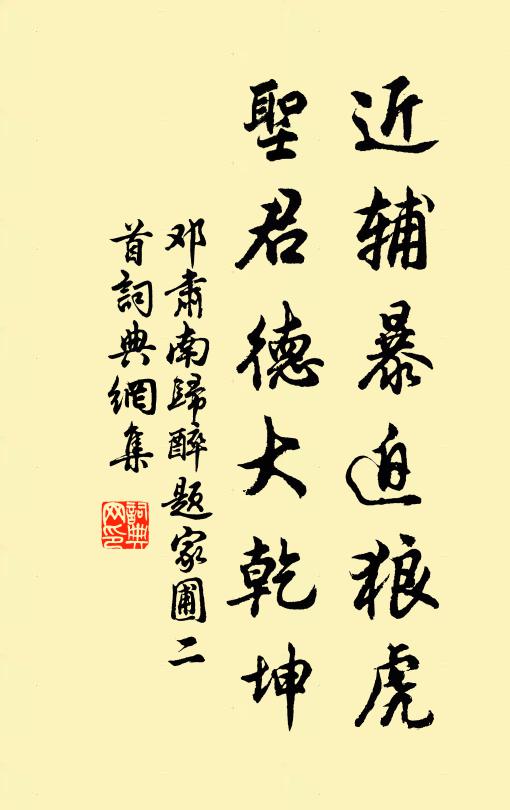 近辅暴迫狼虎
聖君德大乾坤
邓肃南歸醉题家圃二
首詞典網集
詞典
网印